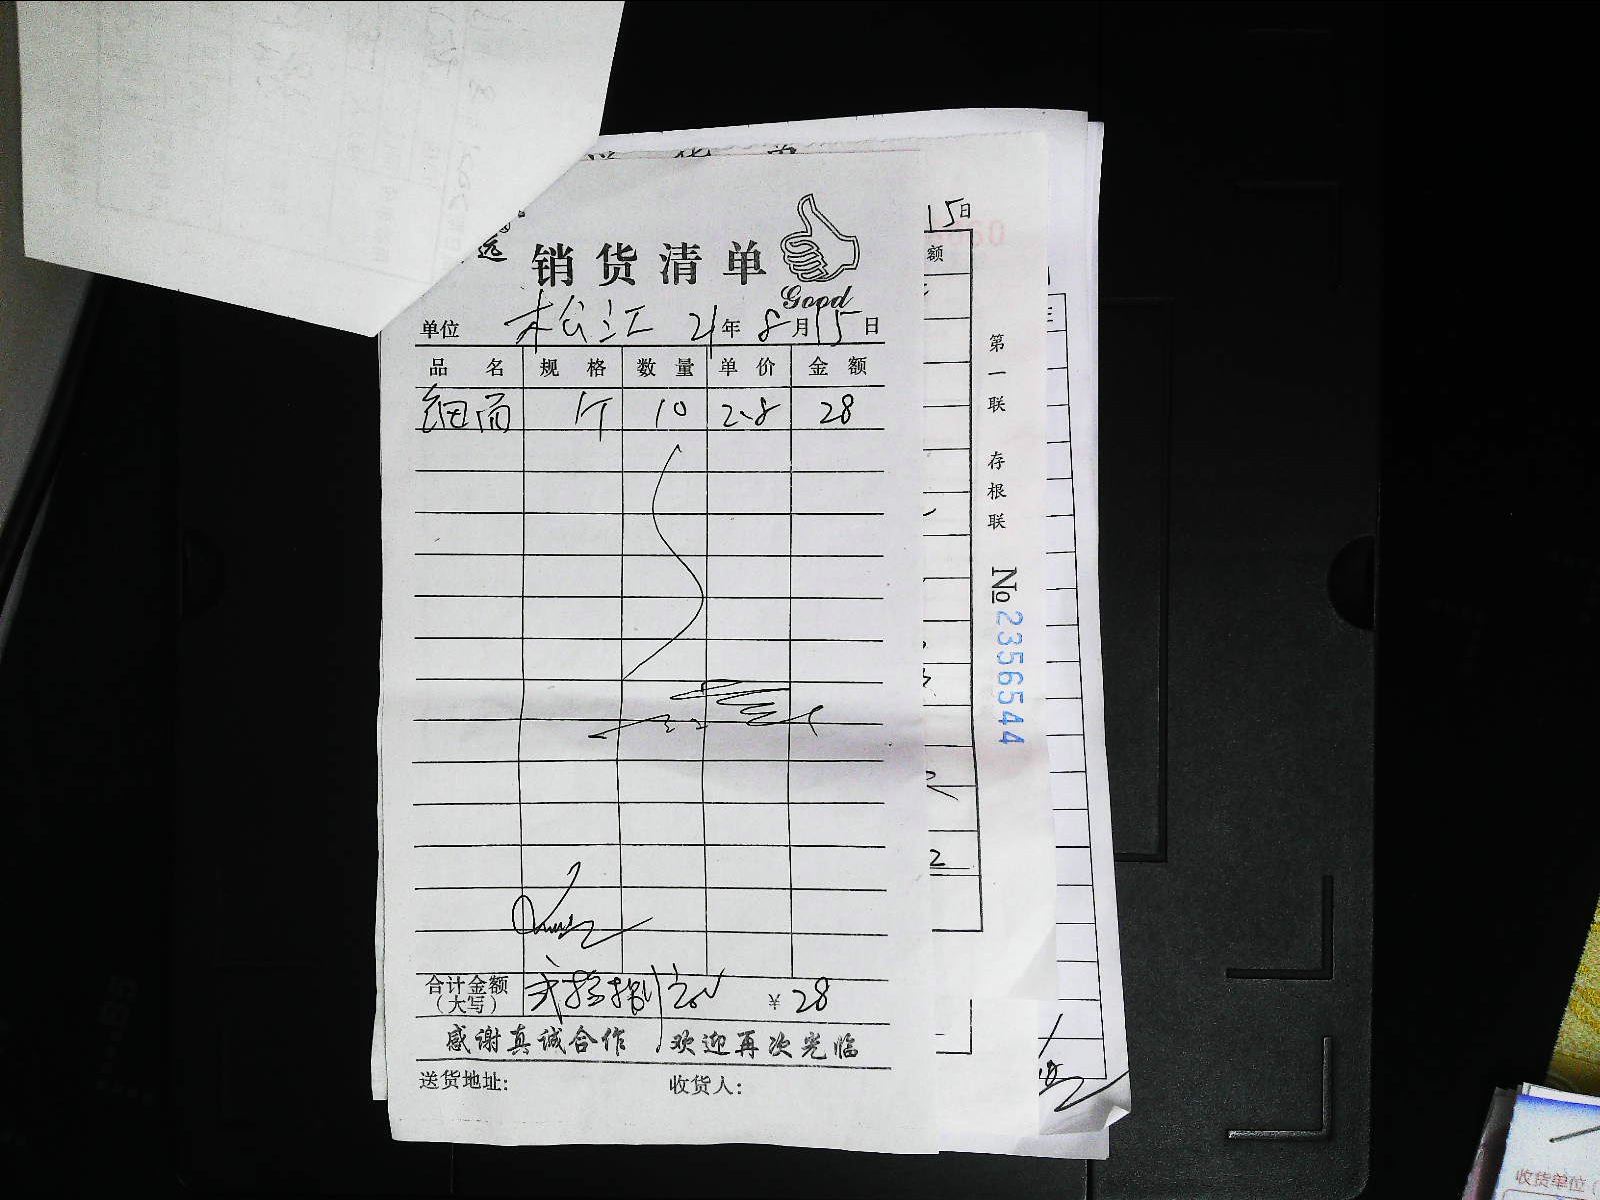 远
销货清单
Good
单位 松江 21年8月15日
品名 规格 数量 单价 金额
细面 斤 10 2.8 28
合计金额（大写） 贰拾捌元 ¥28
感谢真诚合作 欢迎再次光临
送货地址: 收货人:
15日
额
2
第一联 存根联 №2356544
收货单位